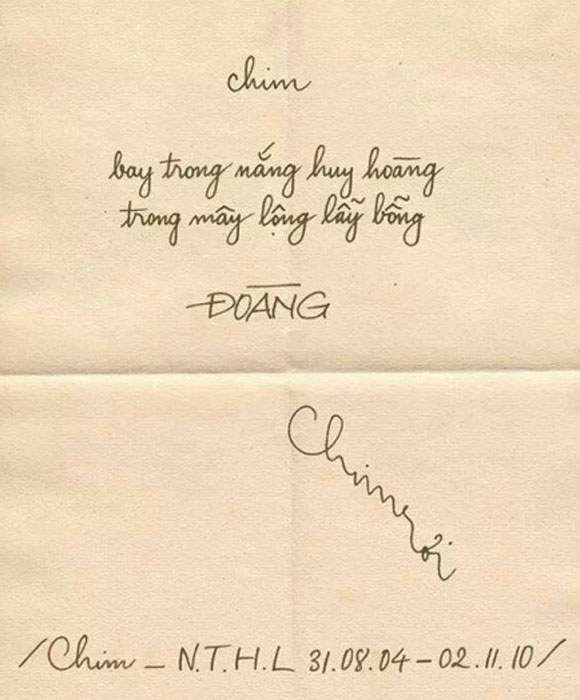 chim
bay trong nắng huy hoàng
trong mây lộng lẫy bỗng
ĐOÀNG
Chim rơi
/Chim – N.T.H.L 31.08.04 – 02.11.10/